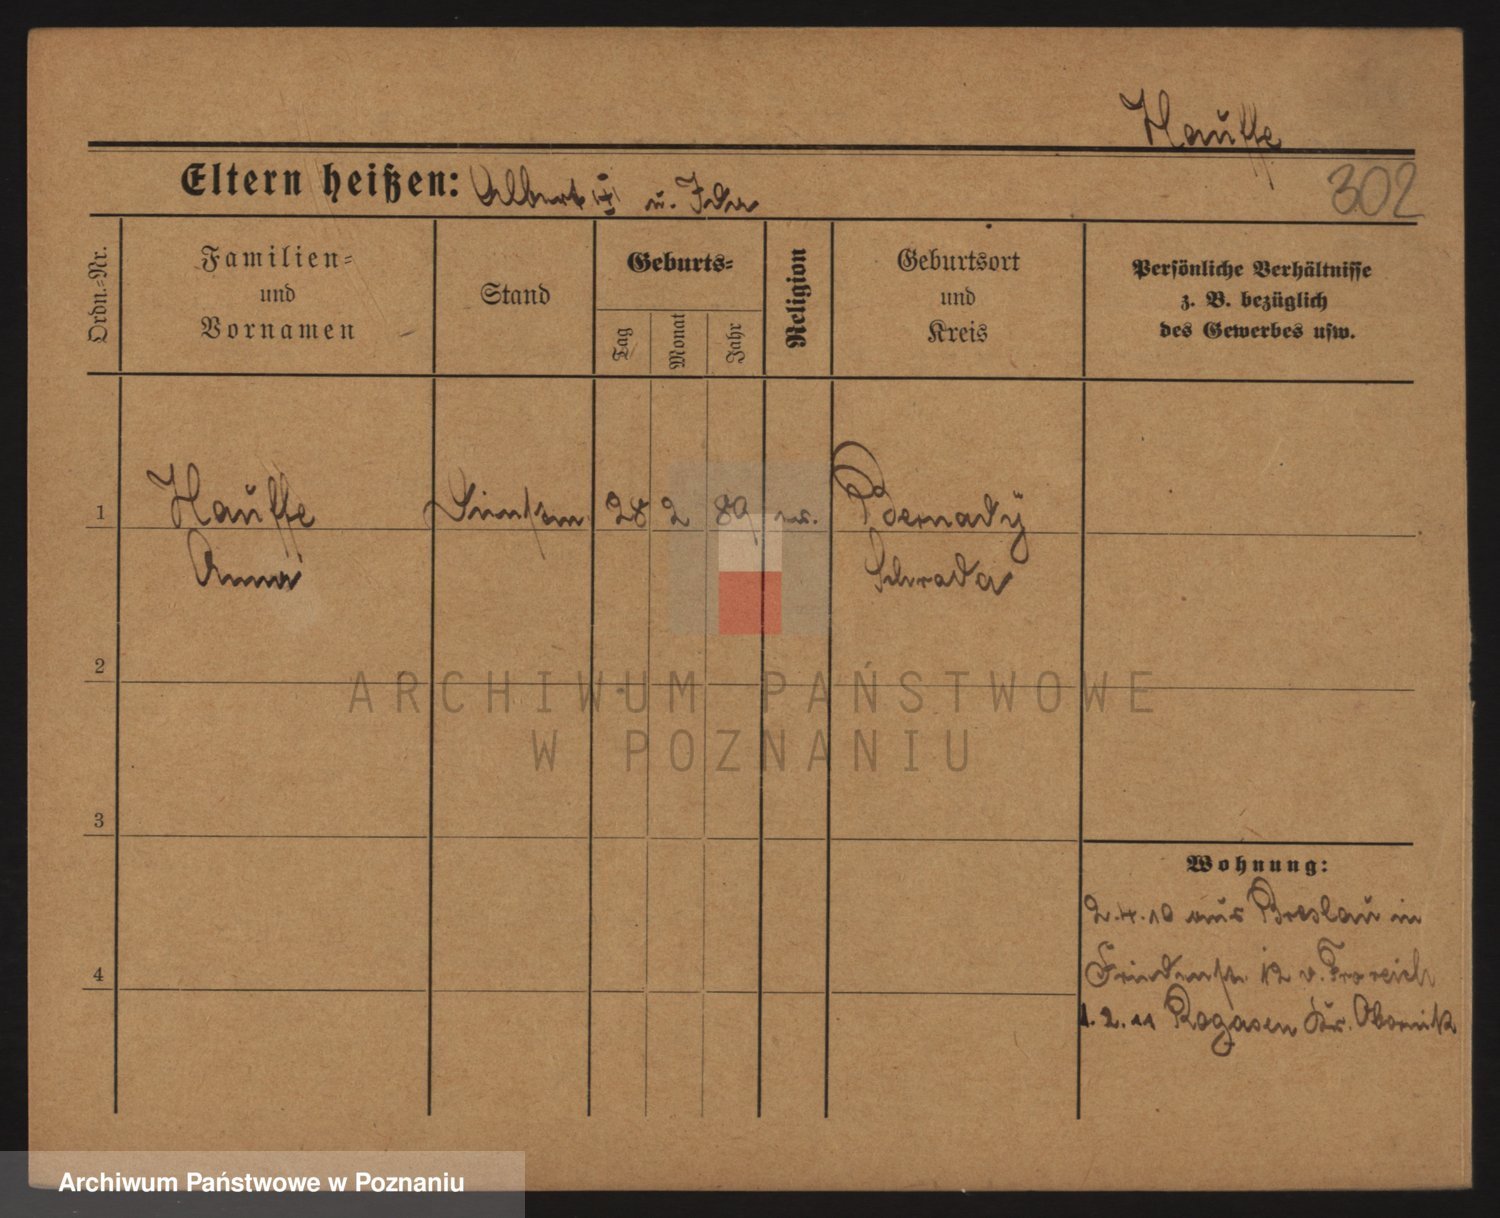 Hauffe
Eltern heißen: Albert u. Ida
302
Ordn.-Nr.
Familien-
und
Vornamen
Stand
Geburts-
Tag
Monat
Jahr
Religion
Geburtsort
und
Kreis
Persönliche Verhältnisse
z. B. bezüglich
des Gewerbes usw.
1 Hauffe 28 2 89 ev.
Anna Schroda
2
ARCHIWUM PAŃSTWOWE
W POZNANIU
3
Wohnung:
2.4.10 aus Breslau in
4 Friedenstr. 12 v. Froreich
1.2.11 Rogasen Kr. Obornik
Archiwum Państwowe w Poznaniu